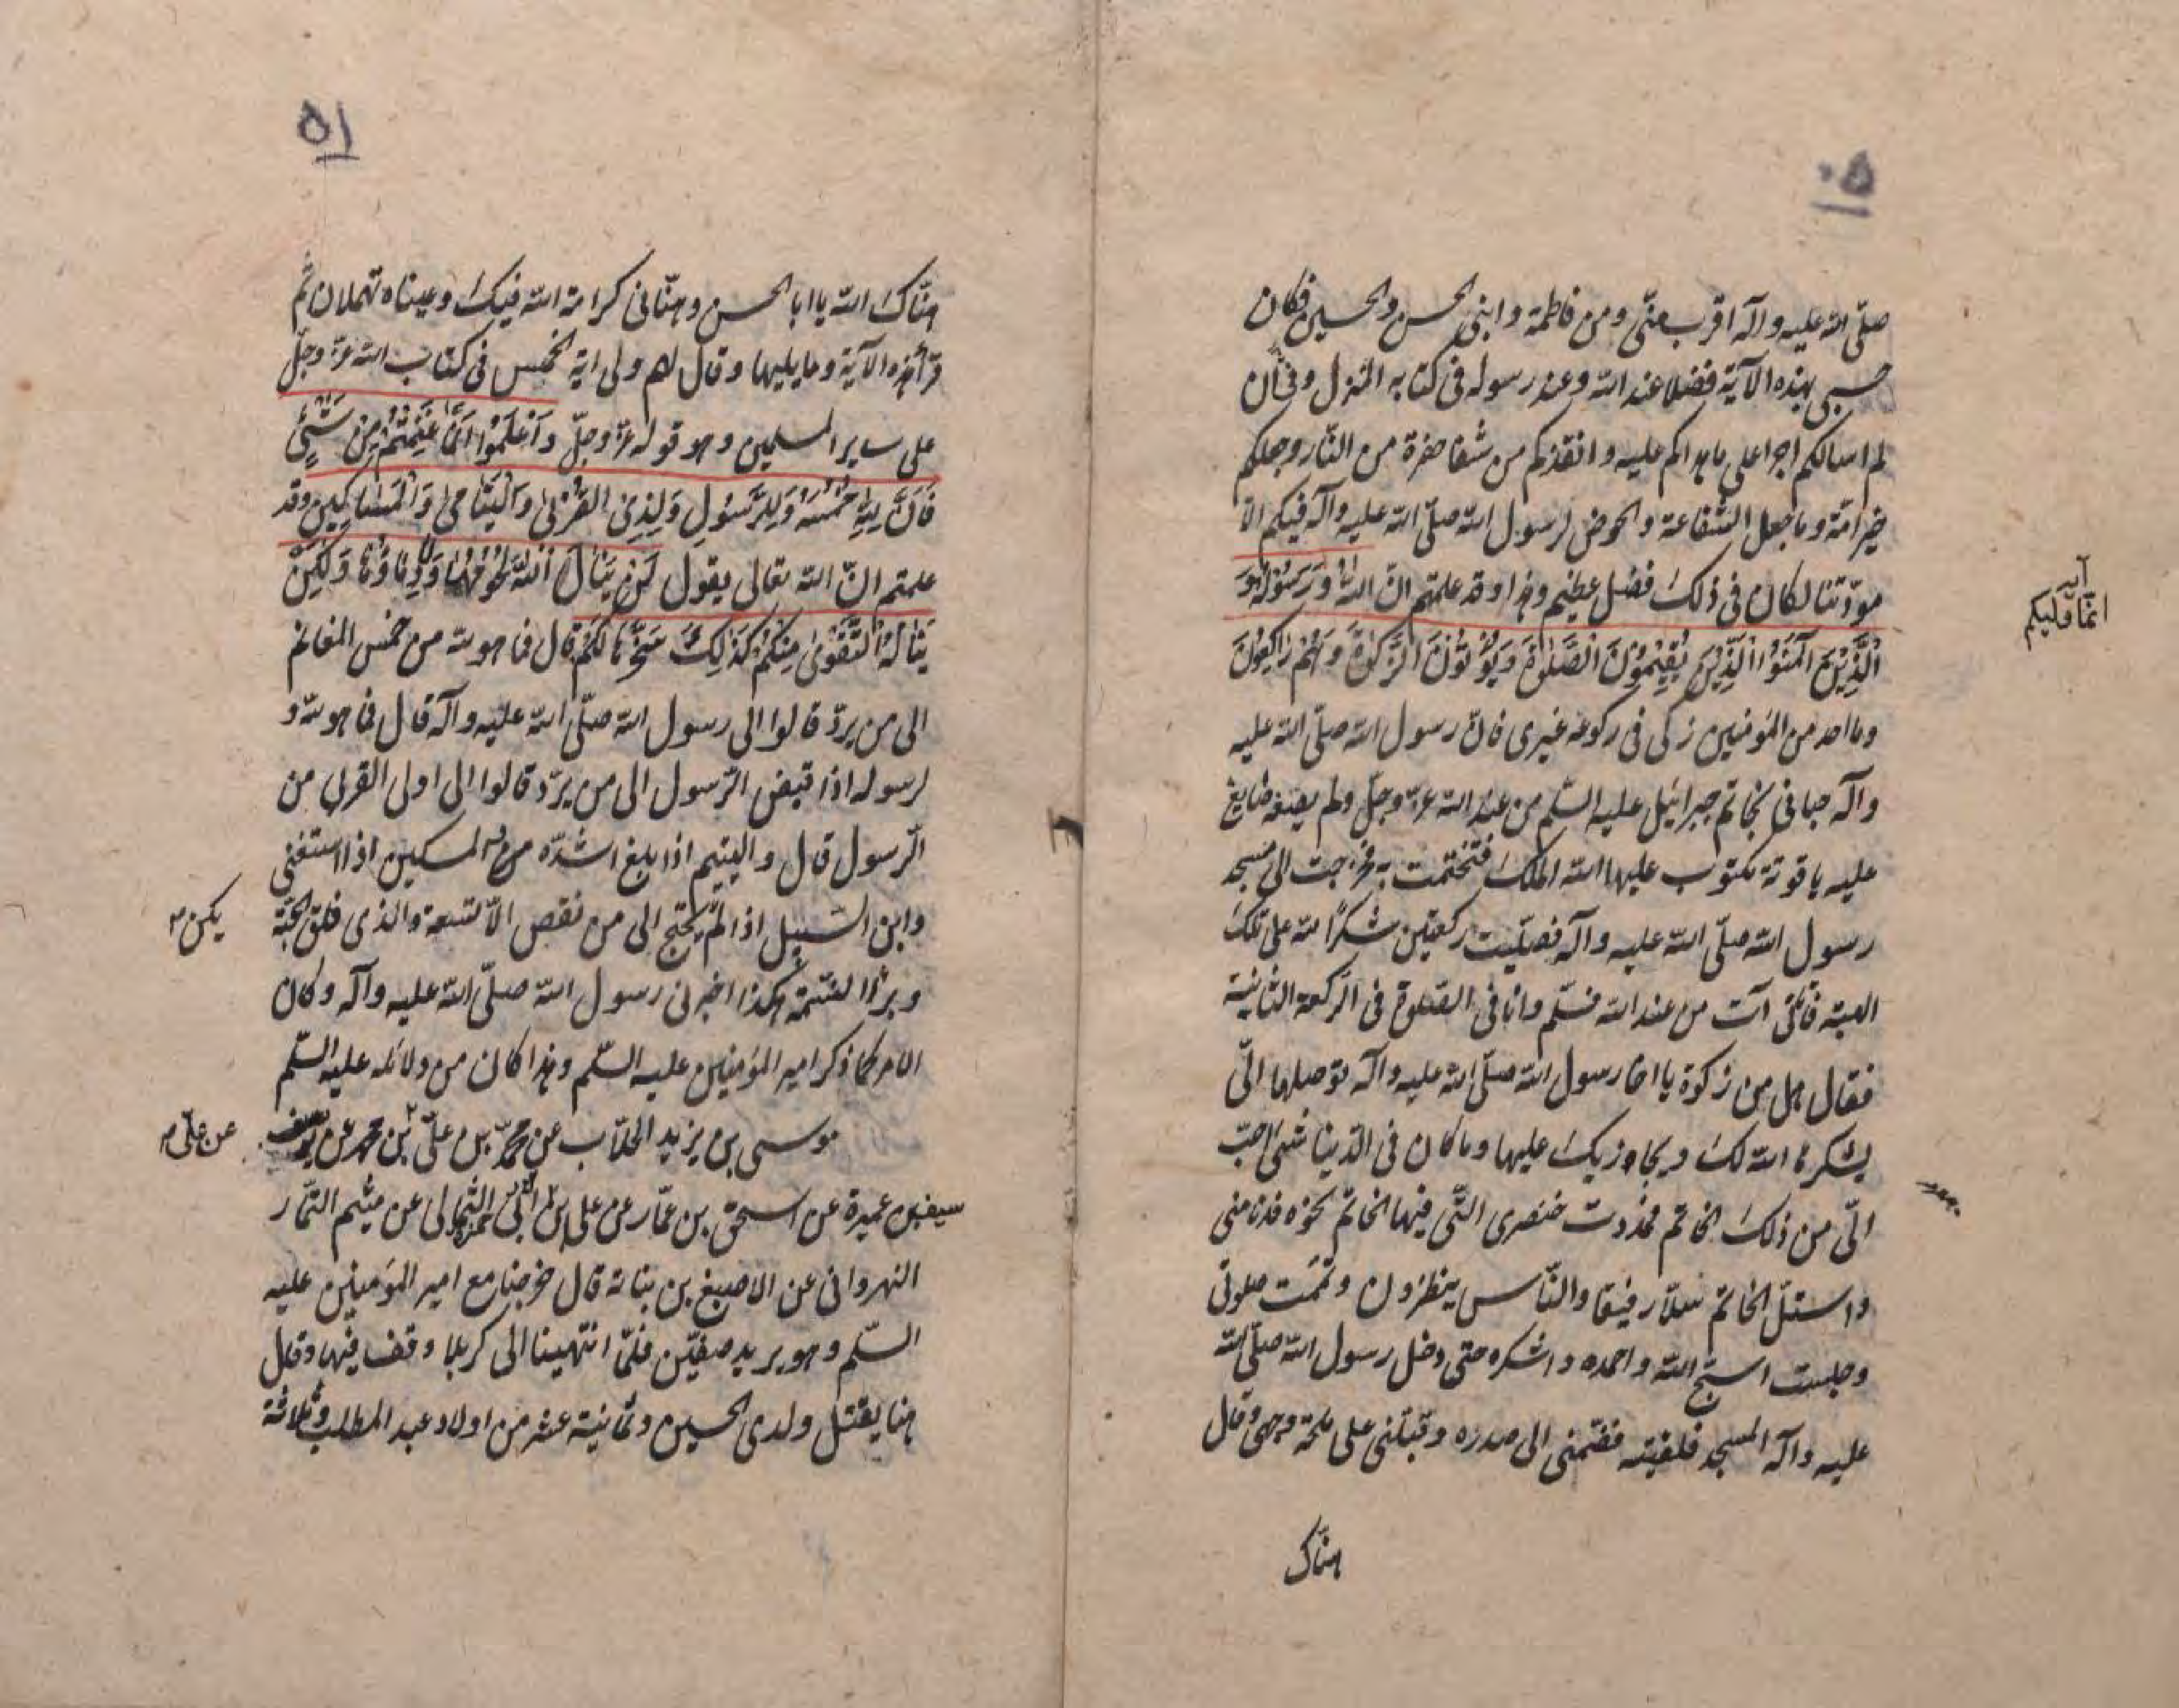 ٥٠
صلّى الله عليه وآله اقرب منّى ومن فاطمة وابنى الحسن والحسين فكان
حسبى بهذه الآية فضلا عند الله وعند رسوله فى كتابه المنزل وفى ان
لم اسالكم اجرا على ما هداكم عليه وانقذكم من شفا حفرة من النّار وجعلكم
خير امّة وما جعل الشّفاعة والحوض لرسول الله صلّى الله عليه وآله فيكم الّا
مودّتنا لكان فى ذلك فضل عظيم وهذا وقد علمتم انّ اللهُ وَرَسُولُهُ وَ
الَّذِيْنَ آمَنُوْا الَّذِيْنَ يُقِيْمُوْنَ الصَّلٰوةَ وَيُؤْتُوْنَ الزَّكٰوةَ وَهُمْ رَاكِعُوْنَ
آية
انّما وليكم
وما احد من المؤمنين زكى فى ركوعه غيرى فانّ رسول الله صلّى الله عليه
وآله حبانى بخاتم جبرائيل عليه السّلم من عند الله عزّ وجلّ ولم يصغه صايغ
عليه ياقوتة مكتوب عليها الله الملك فتختمت به وخرجت الى مسجد
رسول الله صلّى الله عليه وآله فصلّيت ركعتين شكرًا لله على تلك
الهبة فاتانى آت من عند الله فسلّم وانا فى الصّلوة فى الرّكعة الثانية
فقال هل من زكوة يا اخا رسول الله صلّى الله عليه وآله توصلها الىّ
يشكرها الله لك ويجازيك عليها وما كان فى الدّنيا شىء احبّ
الىّ من ذلك الخاتم فمددت خنصرى الّتى فيها الخاتم نحوه فدنا منى
واستلّ الخاتم سلّا رفيقا والنّاس ينظرون وتمّت صلوتى
وجلست اسبّح الله واحمده واشكره حتى دخل رسول الله صلّى الله
عليه وآله المسجد فلقيته فضمّنى الى صدره وقبّلنى على وجهى وقال
هنّاك
٥١
هنّاك الله يا ابا الحسن وهنّانى كرامة الله فيك وعيناه تهملان ثم
قرأ هذه الآية وما يليها وقال لهم ولى آية الخمس فى كتاب الله عزّ وجلّ
على ساير المسلمين وهو قوله عزّ وجلّ وَاعْلَمُوْا اَنَّمَا غَنِمْتُمْ مِنْ شَيْئٍ
فَاَنَّ لِلّٰهِ خُمُسَهُ وَلِلرَّسُوْلِ وَلِذِىْ الْقُرْبٰى وَالْيَتَامٰى وَالْمَسَاكِيْنِ وقد
علمتم انّ الله تعالى يقول لَنْ يَنَالَ اللهَ لُحُوْمُهَا وَلَا دِمَاؤُهَا وَلٰكِنْ
يَنَالُهُ التَّقْوٰى مِنْكُمْ كَذٰلِكَ سَخَّرَهَا لَكُمْ قال فما هو لله من خمس المغانم
الى من يردّ قالوا الى رسول الله صلّى الله عليه وآله قال فما هو لله و
لرسوله اذا قبض الرّسول الى من يردّ قالوا الى اولى القربى من
الرّسول قال واليتيم اذا بلغ اشدّه والمسكين اذا استغنى
وابن السّبيل اذا لم يحتج الى من نقص الّا لتسعة والذى فلق الحبّة
يكن
وبرأ النّسمة هكذا اخبرنى رسول الله صلّى الله عليه وآله وكان
الامر كما ذكر امير المؤمنين عليه السّلم وهذا كان من دلائله عليه السّلم
موسى بن يزيد الحلّاب عن محمّد بن علىّ بن محمد عن يوسف
عن علىّ
سيف بن عميرة عن اسحق بن عمّار عن على بن ابى الثمالى عن ميثم التمّار
النهروانى عن الاصبغ بن نباتة قال خرجنا مع امير المؤمنين عليه
السّلم وهو يريد صفّين فلمّا انتهينا الى كربلا وقف فيها وقال
هنا يقتل ولدى الحسين وثمانية عشر من اولاد عبد المطلب وثلاثة